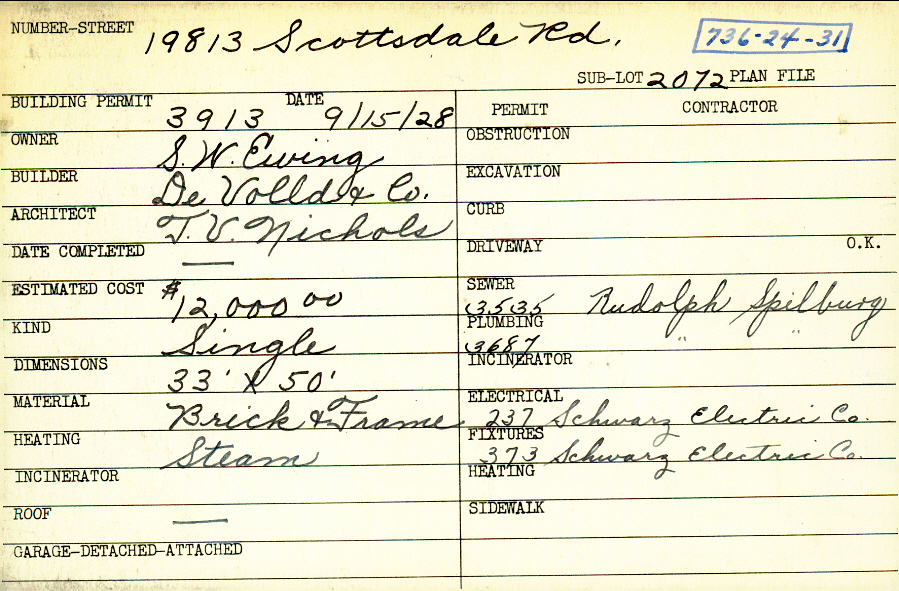 NUMBER-STREET 19813 Scottsdale Rd. 736-24-31
SUB-LOT 2072 PLAN FILE
BUILDING PERMIT 3913 DATE 9/15/28
OWNER S. W. Ewing
BUILDER De Volld & Co.
ARCHITECT T. V. Nichols
DATE COMPLETED —
ESTIMATED COST $12,000 00
KIND Single
DIMENSIONS 33' x 50'
MATERIAL Brick & Frame
HEATING Steam
INCINERATOR
ROOF —
GARAGE-DETACHED-ATTACHED
PERMIT CONTRACTOR
OBSTRUCTION
EXCAVATION
CURB
DRIVEWAY O.K.
SEWER 3535 Rudolph Spilburg
PLUMBING 3687 " "
INCINERATOR
ELECTRICAL 237 Schwarz Electric Co.
FIXTURES 373 Schwarz Electric Co.
HEATING
SIDEWALK